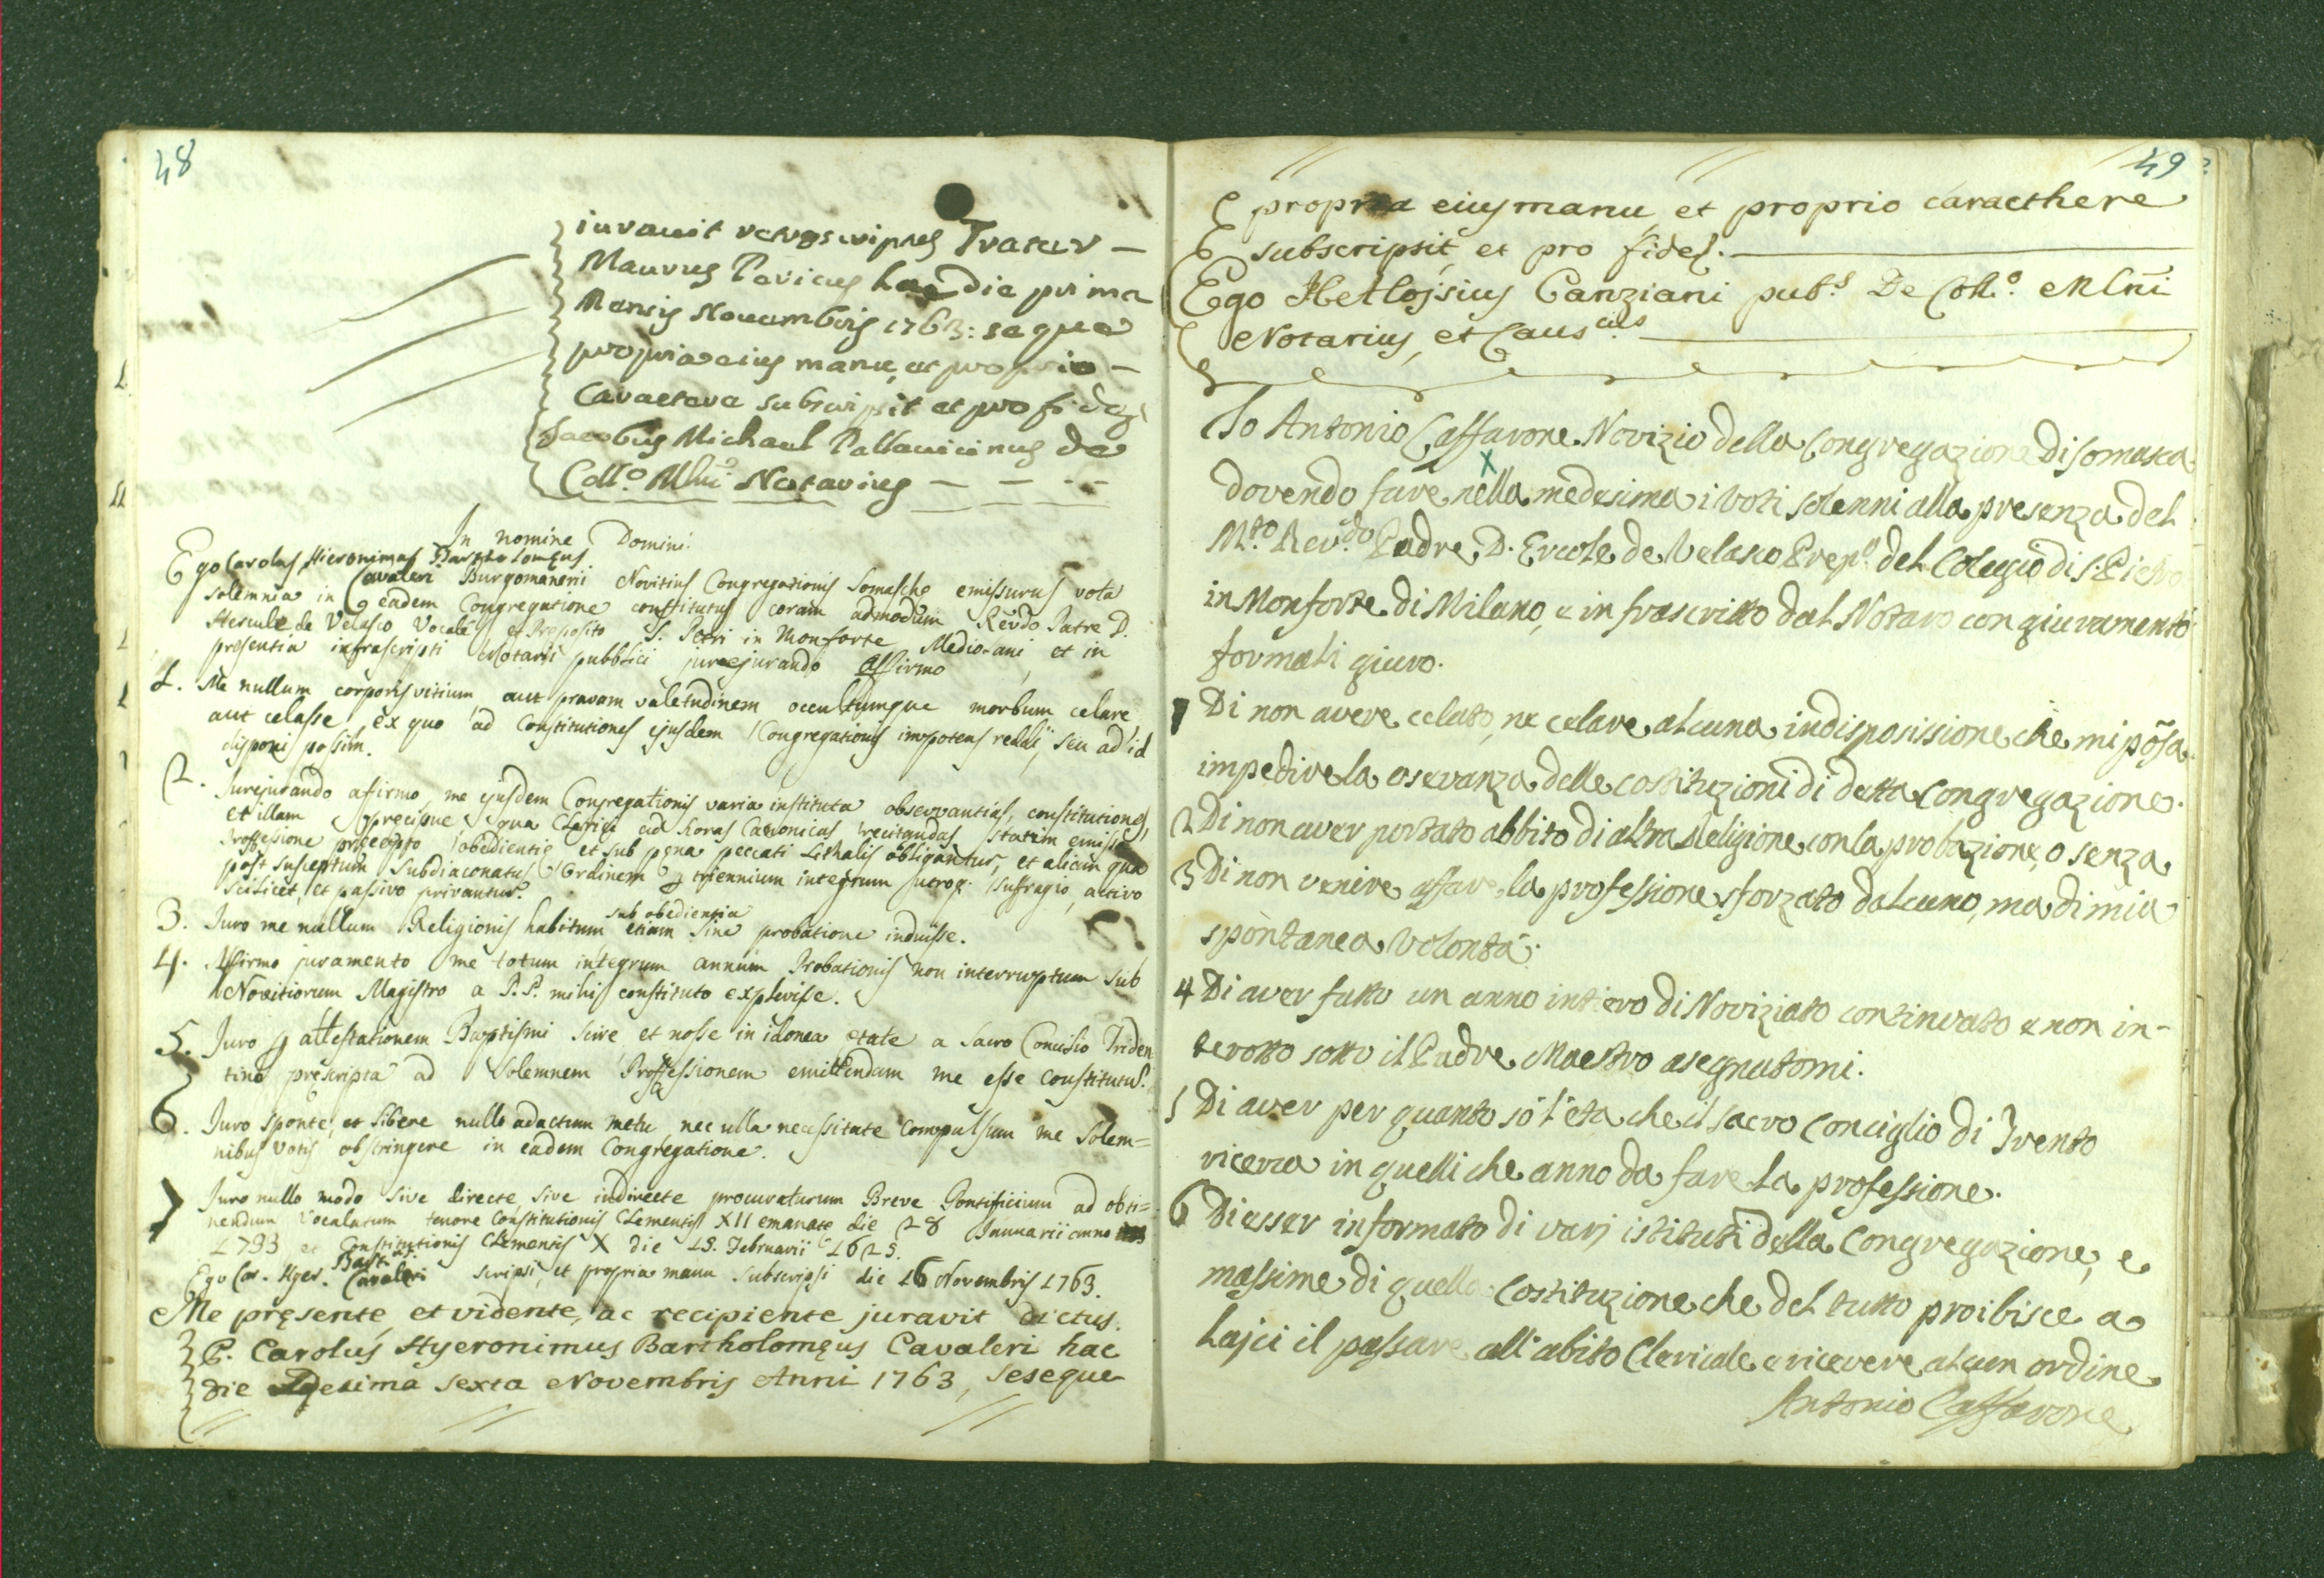 48
iuravit retroscriptus Frater —
Maurus Pavicus hac die prima
Mensis Novembris 1763: seque
propria eius manu, et proprio —
Caractere subscripsit et pro fide
Jacobus Michael Pallavicinus de
Coll.o Mlni Notarius — — —
In nomine Domini.
Ego Carolus Hieronimus Bartholomęus
Cavaleri Burgomanerii Novitius Congregationis Somaschę emissurus vota
solemnia in eadem Congregatione constitutus coram admodum Revdo Patre D.
Hercule de Velasco Vocale et Preposito S. Petri in Monforte Mediolani et in
presentia infrascripti Notarii pubblici jurejurando affirmo
1. Me nullum corporis vitium aut pravam valetudinem occultumque morbum celare,
aut celasse, ex quo ad Constitutiones ejusdem Congregationis impotens reddi, seu ad id
disponi possim.
2. Jurejurando afirmo me ejusdem Congregationis varia instituta observantias, constitutiones,
et illam precipue qua Clerici ad horas Canonicas recitandas statim emissa
Professione pręcepto obedientię et sub pęna peccati Lethalis obligantur, et alicam qua
post susceptum Subdiaconatus Ordinem p triennium integrum utroq. suffragio, activo
scilicet, et passivo privantur.
3. Juro me nullum Religionis habitum sub obedientia etiam sine probatione induisse.
4. Affirmo juramento me totum integrum annum Probationis non interruptum sub
Novitiorum Magistro a P.P. mihi constituto explevisse.
5. Juro p attestationem Baptismi scire et nosse in idonea etate a Sacro Concilio Triden
tino prescripta ad Solemnem Professionem emittendam me esse constitutu.
6. Juro sponte, et libere nullo adactum metu nec ulla necessitate compulsum me solem=
nibus votis obstringere in eadem Congregatione.
7 Juro nullo modo sive directe, sive indirecte procuraturum Breve Pontificium ad obti=
nendum Vocalatum tenore Constitutionis Clementis XII emanate die 28 Januarii anno
1733 et Constitutionis Clementis X die 15. Februarii 1625.
Ego Car. Hyer. Bart. Cavaleri scripsi, et propria manu subscripsi die 16 Novembris 1763.
Me pręsente, et vidente, ac recipiente juravit dictus.
P. Carolus Hyeronimus Bartholomęus Cavaleri hac
die decima sexta Novembris Anni 1763, seseque
49
propria eius manu, et proprio caracthere
subscripsit, et pro fide.
Ego Alloysius Canziani pub.s De Coll.o Mlni
Notarius, et Caus.cus
Io Antonio Caffarone Novizio della Congregazione di Somasca
dovendo fare nella medesima i voti solenni alla presenza del
M.to Rev.do Padre D. Ercole de Velasco Prep.o del Colegio di S. Pietro
in Monforte di Milano, e infrascritto dal Notaro con giuramento
formali giuro.
1 Di non avere celato, ne celare alcuna indisposissione che mi posa
impedire la oservanza delle costituzioni di detta Congregazione.
2 Di non aver portato abbito di altra Religione con la probazione, o senza
3 Di non venire affare la professione sforzato dalcuno, ma di mia
spontanea volontà.
4 Di aver fatto un anno intiero di Noviziato continvato e non in-
terotto sotto il Padre Maestro asegnatomi.
5 Di aver per quanto sò l'eta che il sacro Conciglio di Trento
ricerca in quelli che anno da fare la professione.
6 Di esser informato di varj istituti della Congregazione, e
massime di quella Costituzione che del tutto proibisce a
Lajci il passare all'abito Clericale e ricevere alcun ordine
Antonio Caffarone